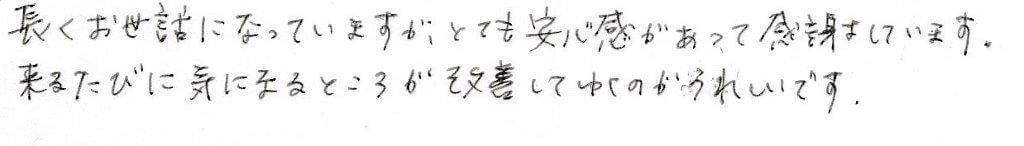 長くお世話になっていますが、とても安心感があって感謝しています。
来るたびに気になるところが改善してゆくのがうれしいです.